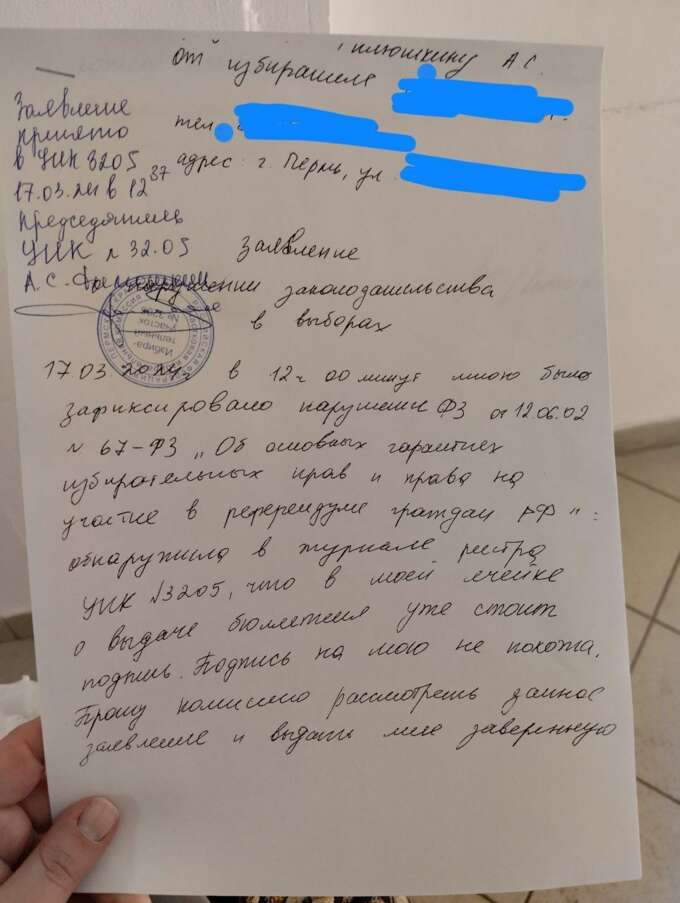 А.С.
От избирателя
тел.
адрес: г Пермь, ул.
Заявление
принято
в УИК 3205
17.03. в 12 37
Председатель
УИК № 32.05
А.С.
Заявление
о нарушении законодательства
в выборах
17.03.2024г. в 12ч 00 минут мною было
зафиксировано нарушение ФЗ от 12.06.02
№ 67-ФЗ „Об основных гарантиях
избирательных прав и права на
участие в референдуме граждан РФ":
обнаружила в журнале реестра
УИК №3205, что в моей ячейке
о выдаче бюллетеня уже стоит
подпись. Подпись на мою не похожа.
Прошу комиссию рассмотреть данное
заявление и выдать мне заверенную
Избира-
тельный
участок
№ 3205